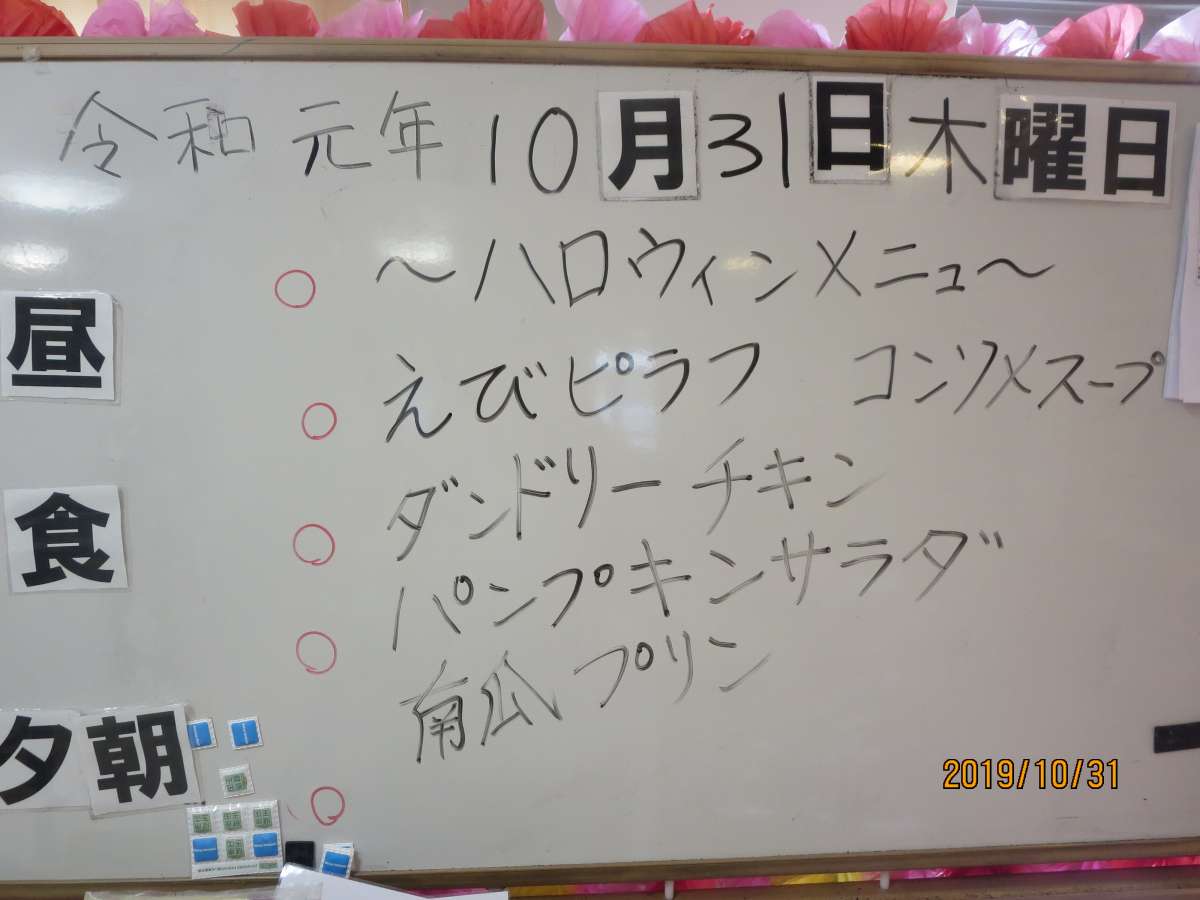 令和元年10月31日木曜日
〜ハロウィンメニュー〜
昼
えびピラフ コンソメスープ
タンドリーチキン
食
パンプキンサラダ
南瓜プリン
夕朝
2019/10/31